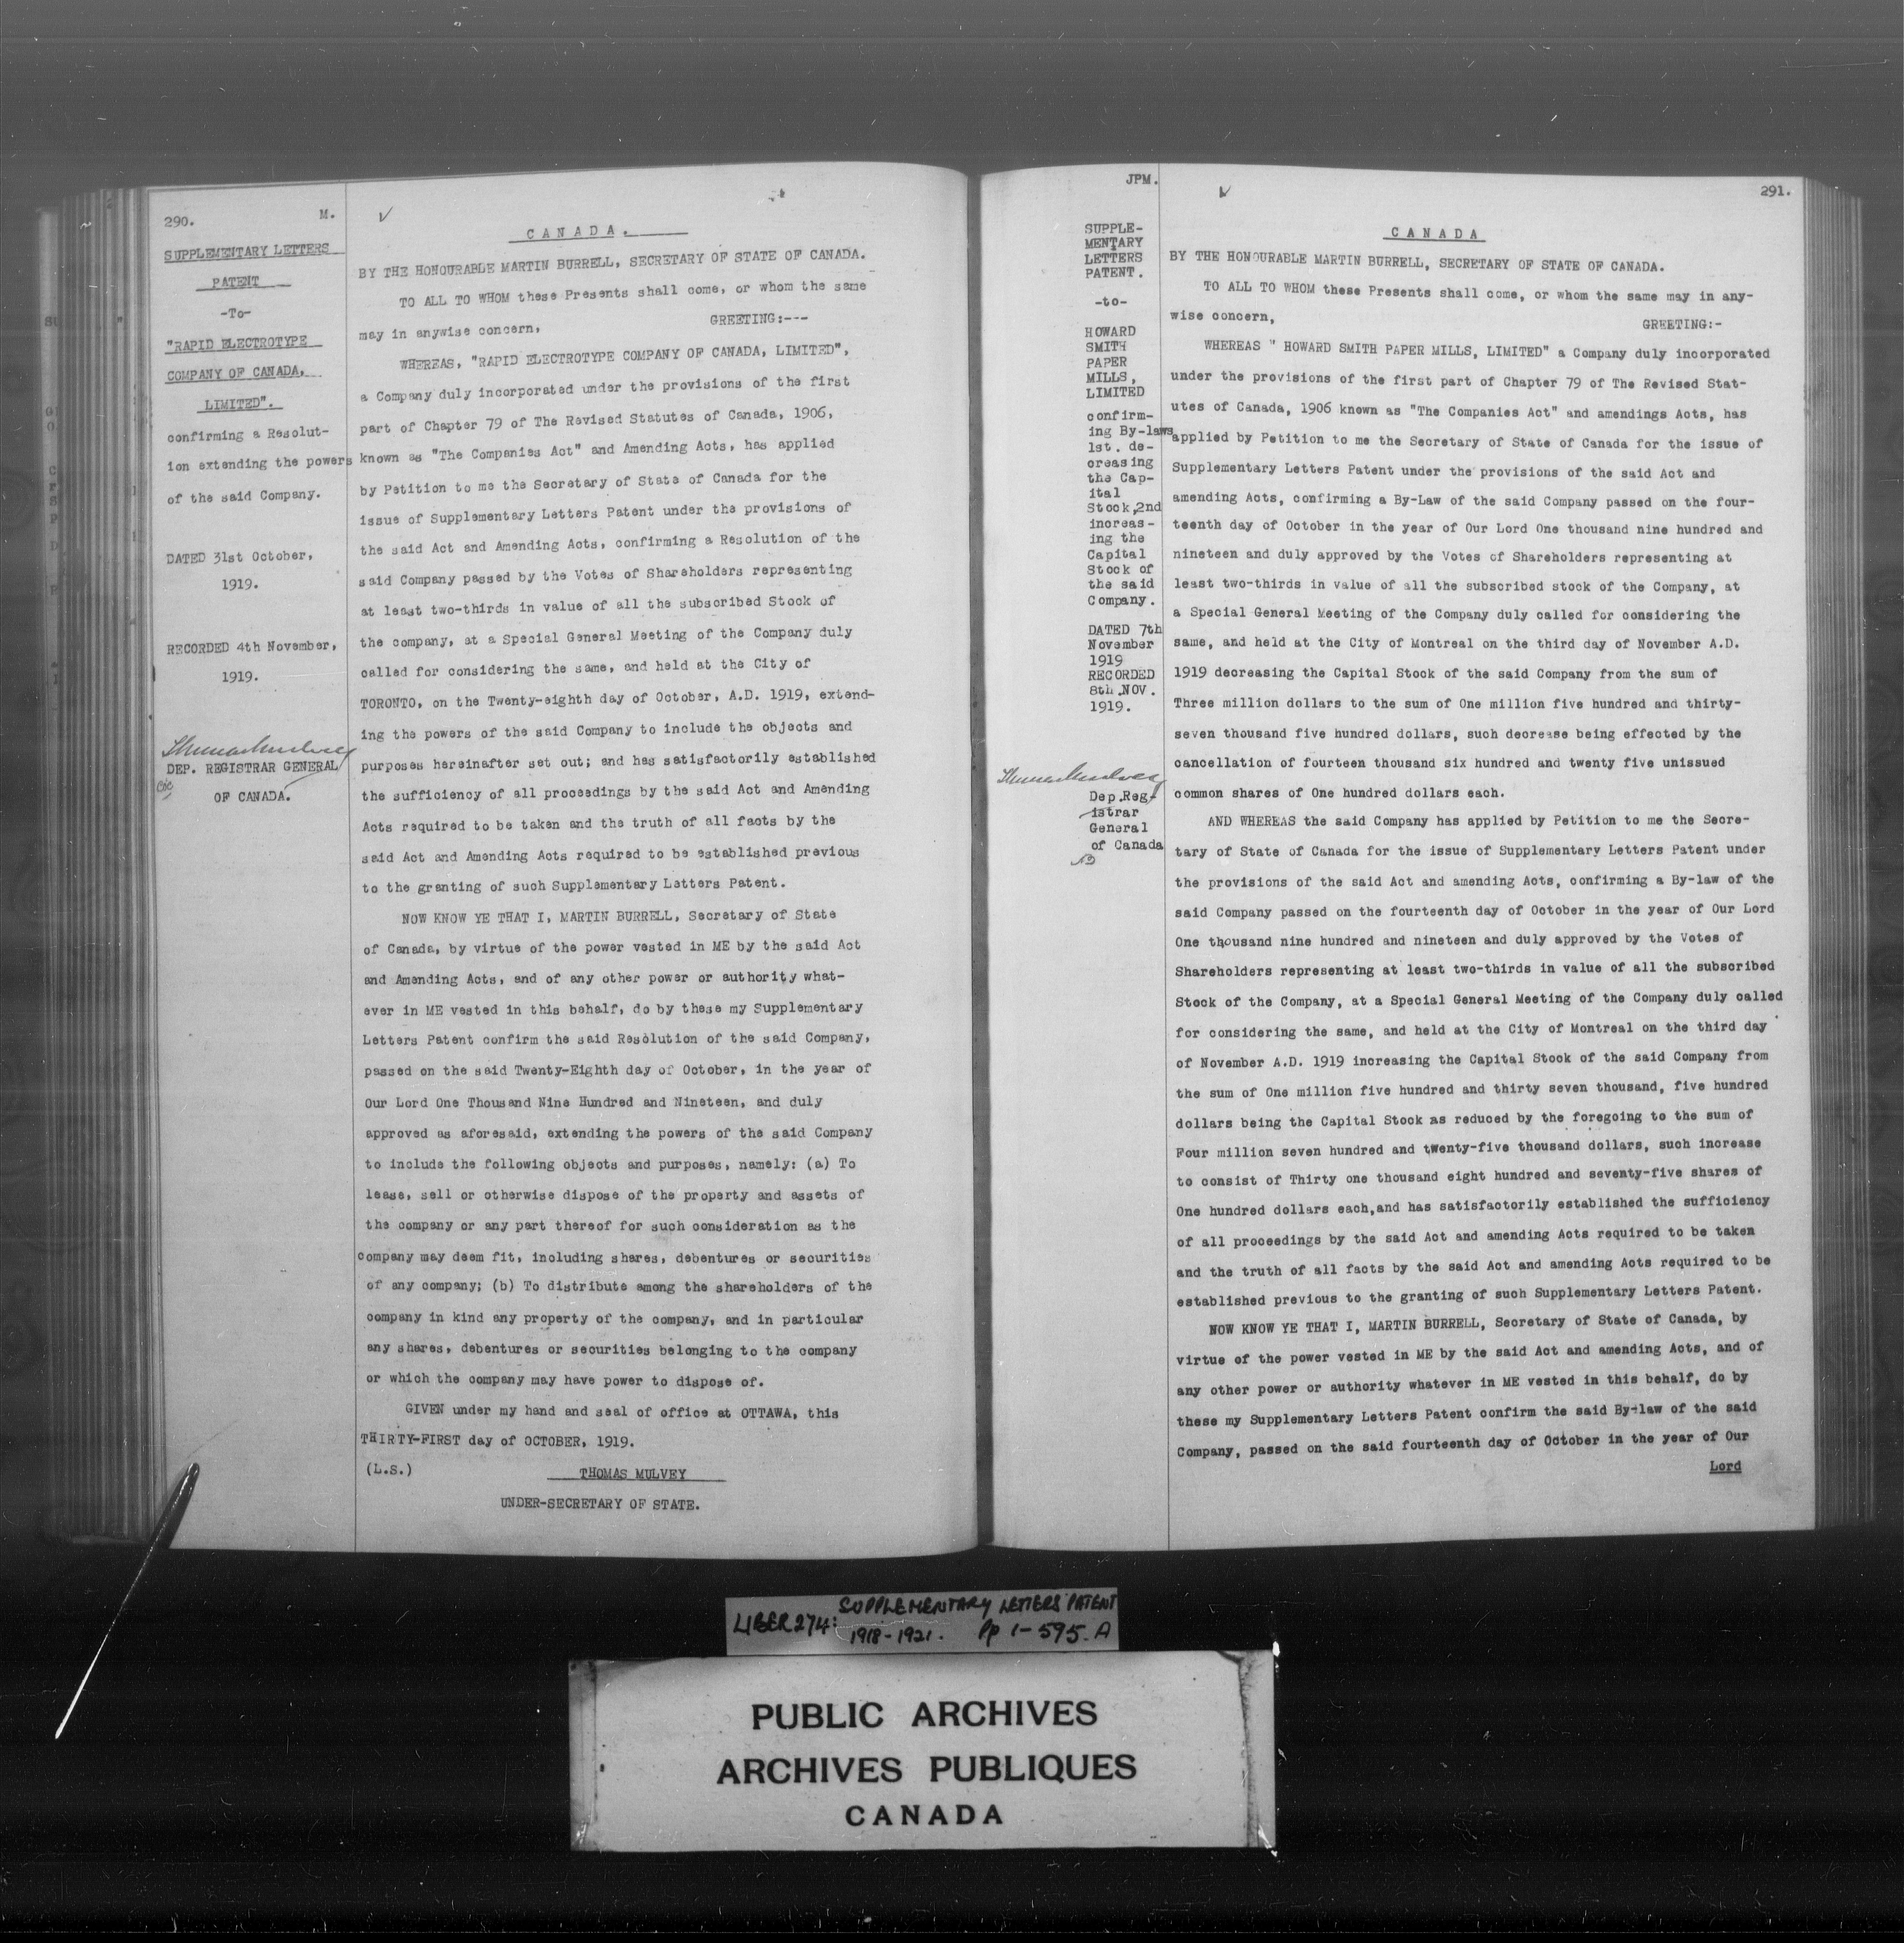 290.
M.
SUPPLEMENTARY LETTERS
PATENT
-To-
"RAPID ELECTROTYPE
COMPANY OF CANADA,
LIMITED".
confirming a Resolut-
ion extending the powers
of the said Company.
DATED 31st October,
1919.
RECORDED 4th November,
1919.
Thomas Mulvey
DEP. REGISTRAR GENERAL
OF CANADA.
CANADA.
BY THE HONOURABLE MARTIN BURRELL, SECRETARY OF STATE OF CANADA.
TO ALL TO WHOM these Presents shall come, or whom the same
may in anywise concern, GREETING:---
WHEREAS, "RAPID ELECTROTYPE COMPANY OF CANADA, LIMITED",
a Company duly incorporated under the provisions of the first
part of Chapter 79 of The Revised Statutes of Canada, 1906,
known as "The Companies Act" and Amending Acts, has applied
by Petition to me the Secretary of State of Canada for the
issue of Supplementary Letters Patent under the provisions of
the said Act and Amending Acts, confirming a Resolution of the
said Company passed by the Votes of Shareholders representing
at least two-thirds in value of all the subscribed Stock of
the company, at a Special General Meeting of the Company duly
called for considering the same, and held at the City of
TORONTO, on the Twenty-eighth day of October, A.D. 1919, extend-
ing the powers of the said Company to include the objects and
purposes hereinafter set out; and has satisfactorily established
the sufficiency of all proceedings by the said Act and Amending
Acts required to be taken and the truth of all facts by the
said Act and Amending Acts required to be established previous
to the granting of such Supplementary Letters Patent.
NOW KNOW YE THAT I, MARTIN BURRELL, Secretary of State
of Canada, by virtue of the power vested in ME by the said Act
and Amending Acts, and of any other power or authority what-
ever in ME vested in this behalf, do by these my Supplementary
Letters Patent confirm the said Resolution of the said Company,
passed on the said Twenty-Eighth day of October, in the year of
Our Lord One Thousand Nine Hundred and Nineteen, and duly
approved as aforesaid, extending the powers of the said Company
to include the following objects and purposes, namely: (a) To
lease, sell or otherwise dispose of the property and assets of
the company or any part thereof for such consideration as the
company may deem fit, including shares, debentures or securities
of any company; (b) To distribute among the shareholders of the
company in kind any property of the company, and in particular
any shares, debentures or securities belonging to the company
or which the company may have power to dispose of.
GIVEN under my hand and seal of office at OTTAWA, this
THIRTY-FIRST day of OCTOBER, 1919.
(L.S.) THOMAS MULVEY
UNDER-SECRETARY OF STATE.
JPM.
291.
SUPPLE-
MENTARY
LETTERS
PATENT.
-to-
HOWARD
SMITH
PAPER
MILLS,
LIMITED
confirm-
ing By-laws
1st. de-
creasing
the Cap-
ital
Stock,2nd
increas-
ing the
Capital
Stock of
the said
Company.
DATED 7th
November
1919
RECORDED
8th.NOV.
1919.
Thomas Mulvey
Dep.Reg-
istrar
General
of Canada
CANADA
BY THE HONOURABLE MARTIN BURRELL, SECRETARY OF STATE OF CANADA.
TO ALL TO WHOM these Presents shall come, or whom the same may in any-
wise concern, GREETING:-
WHEREAS " HOWARD SMITH PAPER MILLS, LIMITED" a Company duly incorporated
under the provisions of the first part of Chapter 79 of The Revised Stat-
utes of Canada, 1906 known as "The Companies Act" and amendings Acts, has
applied by Petition to me the Secretary of State of Canada for the issue of
Supplementary Letters Patent under the provisions of the said Act and
amending Acts, confirming a By-Law of the said Company passed on the four-
teenth day of October in the year of Our Lord One thousand nine hundred and
nineteen and duly approved by the Votes of Shareholders representing at
least two-thirds in value of all the subscribed stock of the Company, at
a Special General Meeting of the Company duly called for considering the
same, and held at the City of Montreal on the third day of November A.D.
1919 decreasing the Capital Stock of the said Company from the sum of
Three million dollars to the sum of One million five hundred and thirty-
seven thousand five hundred dollars, such decrease being effected by the
cancellation of fourteen thousand six hundred and twenty five unissued
common shares of One hundred dollars each.
AND WHEREAS the said Company has applied by Petition to me the Secre-
tary of State of Canada for the issue of Supplementary Letters Patent under
the provisions of the said Act and amending Acts, confirming a By-law of the
said Company passed on the fourteenth day of October in the year of Our Lord
One thousand nine hundred and nineteen and duly approved by the Votes of
Shareholders representing at least two-thirds in value of all the subscribed
Stock of the Company, at a Special General Meeting of the Company duly called
for considering the same, and held at the City of Montreal on the third day
of November A.D. 1919 increasing the Capital Stock of the said Company from
the sum of One million five hundred and thirty seven thousand, five hundred
dollars being the Capital Stock as reduced by the foregoing to the sum of
Four million seven hundred and twenty-five thousand dollars, such increase
to consist of Thirty one thousand eight hundred and seventy-five shares of
One hundred dollars each,and has satisfactorily established the sufficiency
of all proceedings by the said Act and amending Acts required to be taken
and the truth of all facts by the said Act and amending Acts required to be
established previous to the granting of such Supplementary Letters Patent.
NOW KNOW YE THAT I, MARTIN BURRELL, Secretary of State of Canada, by
virtue of the power vested in ME by the said Act and amending Acts, and of
any other power or authority whatever in ME vested in this behalf, do by
these my Supplementary Letters Patent confirm the said By-law of the said
Company, passed on the said fourteenth day of October in the year of Our
Lord
LIBER 274: SUPPLEMENTARY LETTERS PATENT
1918-1921. Pp 1-595.A
PUBLIC ARCHIVES
ARCHIVES PUBLIQUES
CANADA